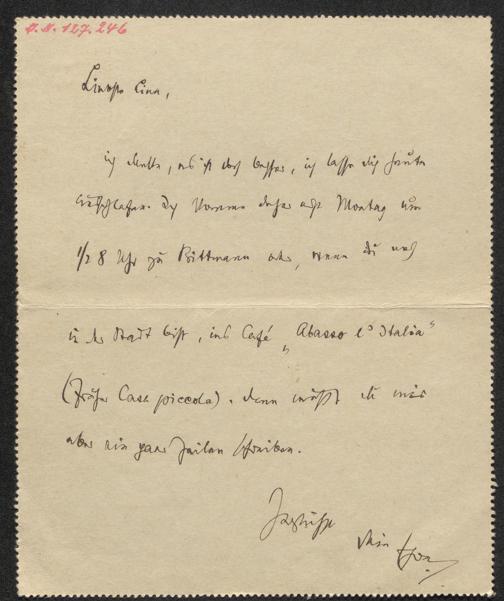 H.N. 127.246
Liebste Lina,
ich denke, es ist doch besser, ich lasse dich heute
ausschlafen. Ich komme daher erst Montag um
1/2 8 Uhr zu Bittmann oder, wenn du noch
in der Stadt bist, ins Café „Abasso l'Italia“
(früher Casa piccola). Dann müsst du mir
aber ein paar Zeilen schreiben.
Dein